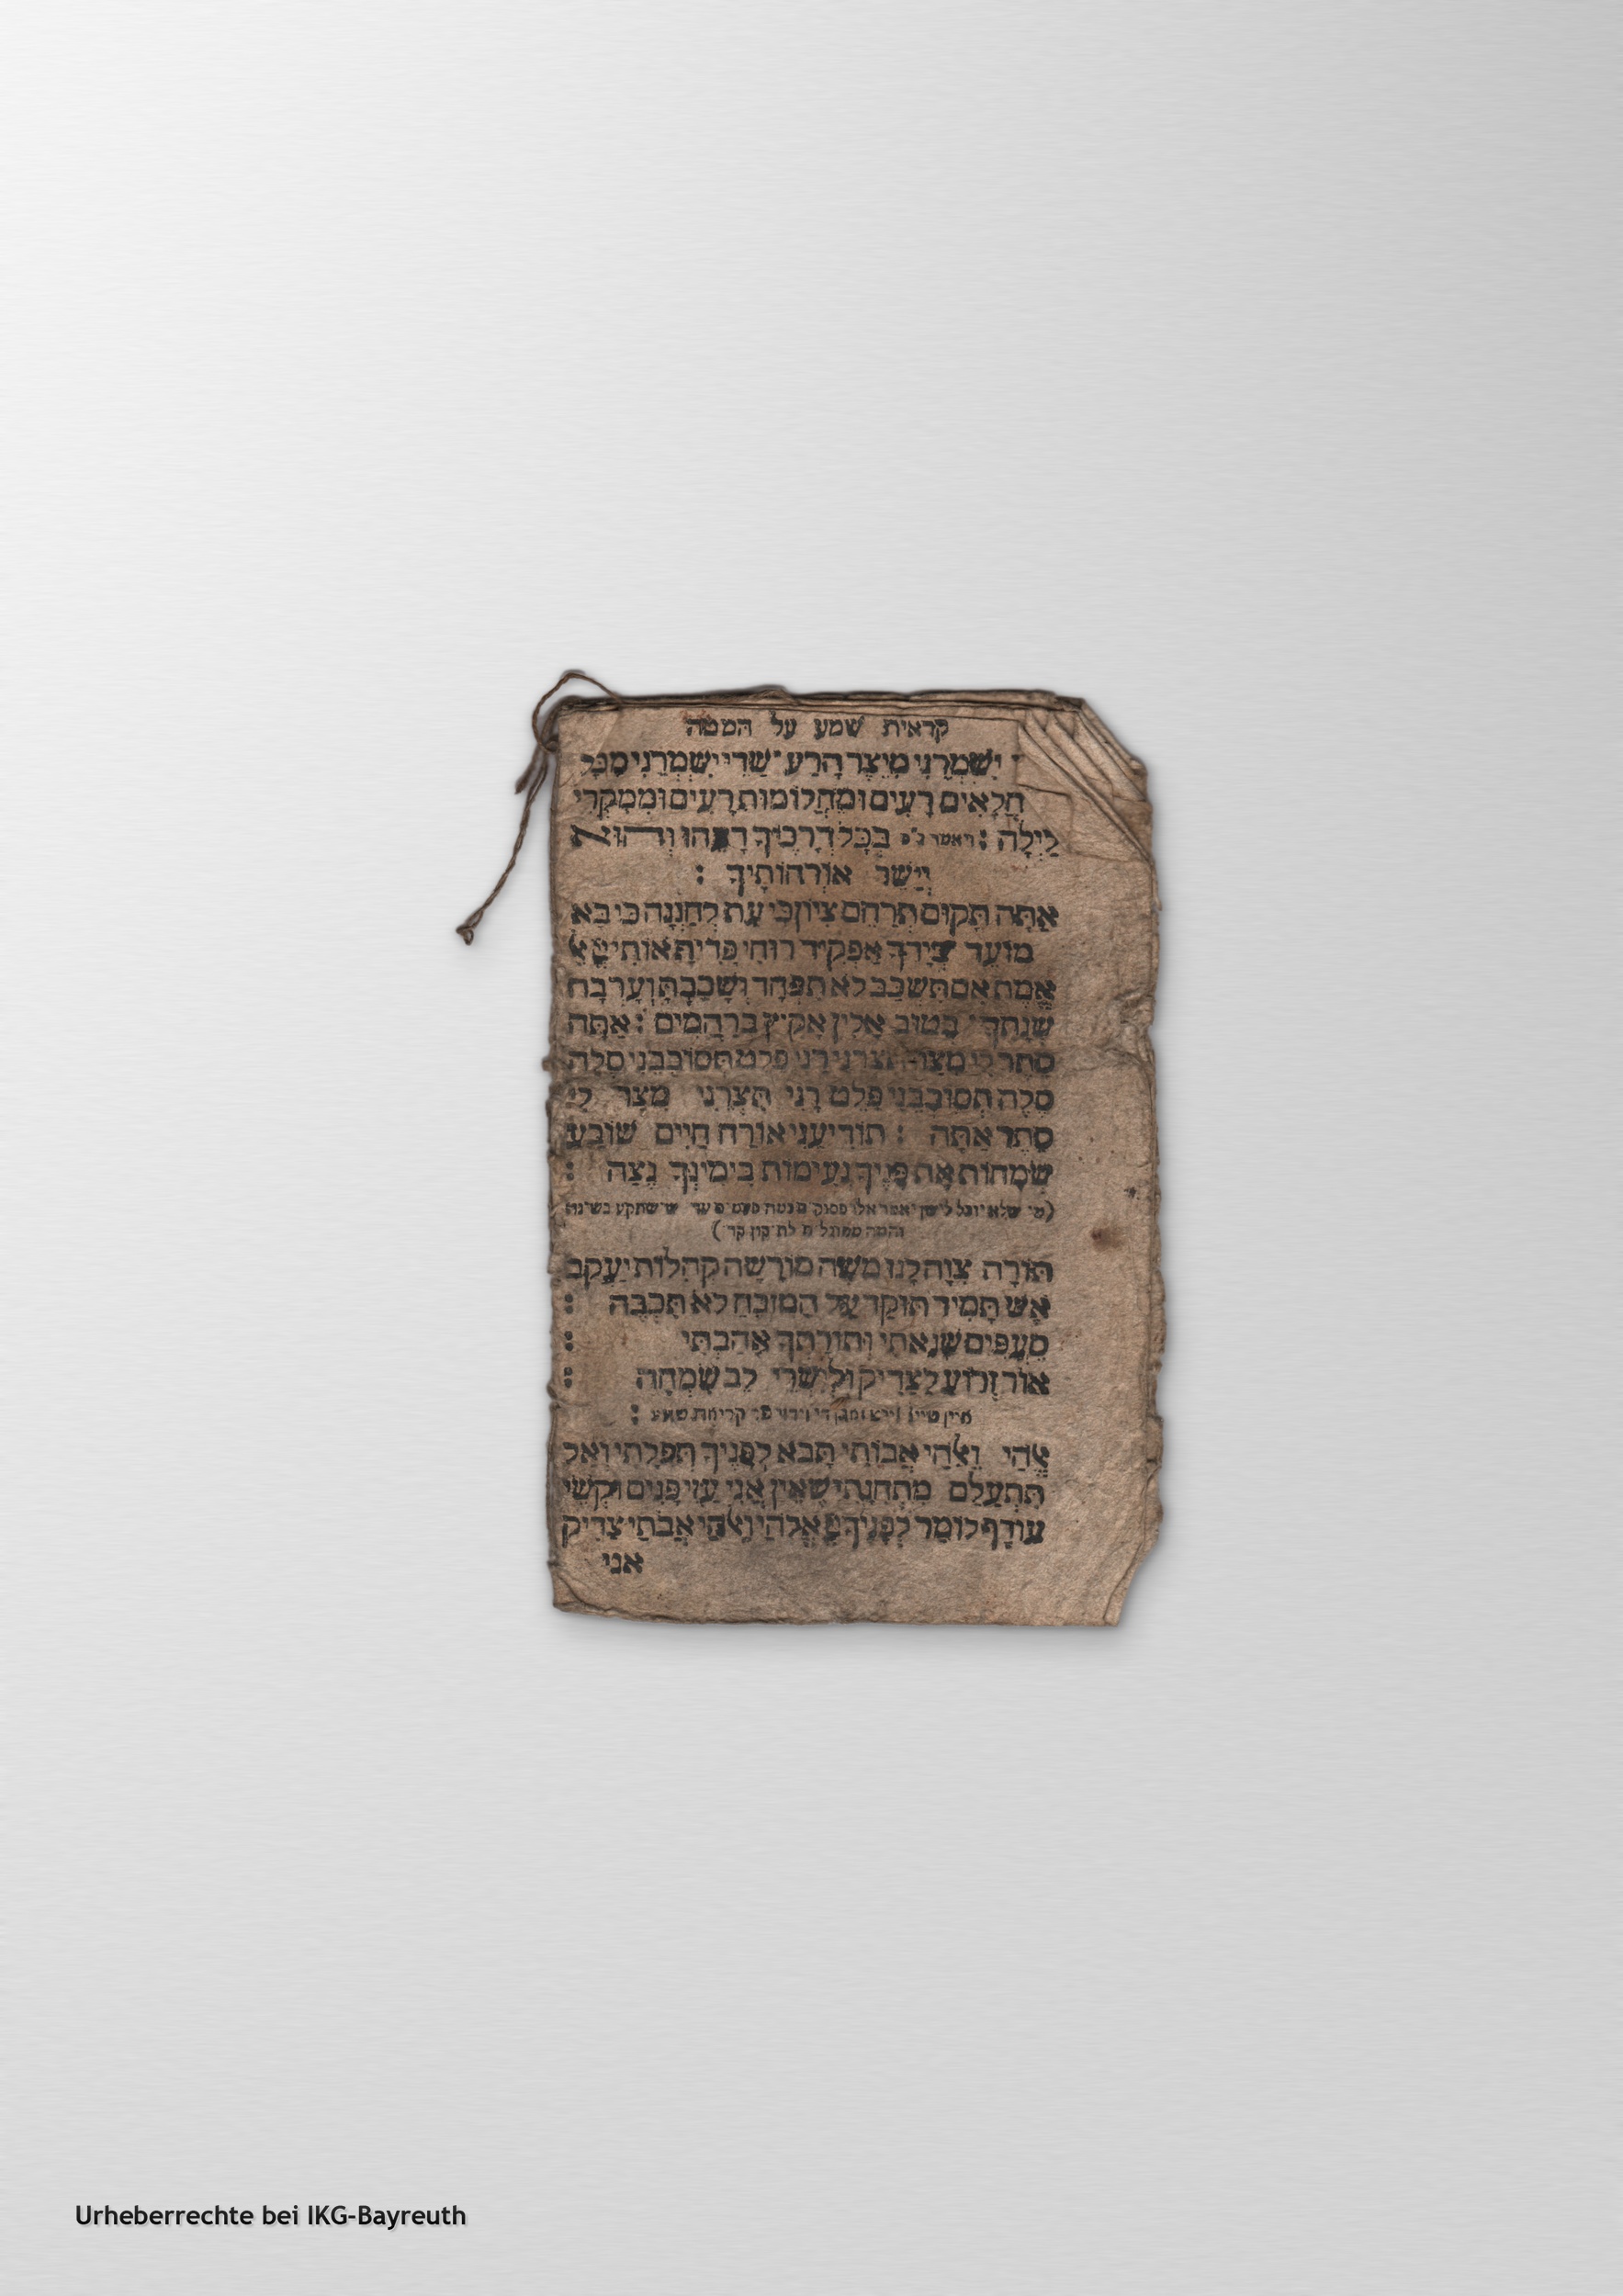 קראית שמע על הממה
ישמרני מיצר הרע שדי ישמרני מכל
חלאים רעים ומחלומות רעים וממקרי
לילה : ויאמר ג"פ בכל דרכיך דעהו והוא
יישר אורחותיך :
אתה תקום תרחם ציון כי עת לחננה כי בא
מועד בידך אפקיד רוחי פדית אותי
אמת אם תשכב לא תפחד ושכבת וערבה
שנתך בטוב אלין אקיץ ברחמים : אתה
סתר לי מצר רני פלט תסובבני סלה
סלה תסובבני פלט רני תצרני מצר לי
סתר אתה : תודיעני אורח חיים שובע
שמחות את פניך נעימות בימינך נצה :
(מי שלא יוכל לישן יאמר אלו עד בשינה
)
תורה צוה לנו משה מורשה קהלות יעקב
אש תמיד תוקד על המזבח לא תכבה :
סעפים שנאתי ותורתך אהבתי :
אור זרוע לצדיק ולישרי לב שמחה :
קריאת שמע :
אלהי ואלהי אבותי תבא לפניך תפלתי ואל
תתעלם מתחנתי שאין אני עזי פנים וקשי
עורף לומר לפניך אלהי ואלהי אבתי צדיק
אני
Urheberrechte bei IKG-Bayreuth